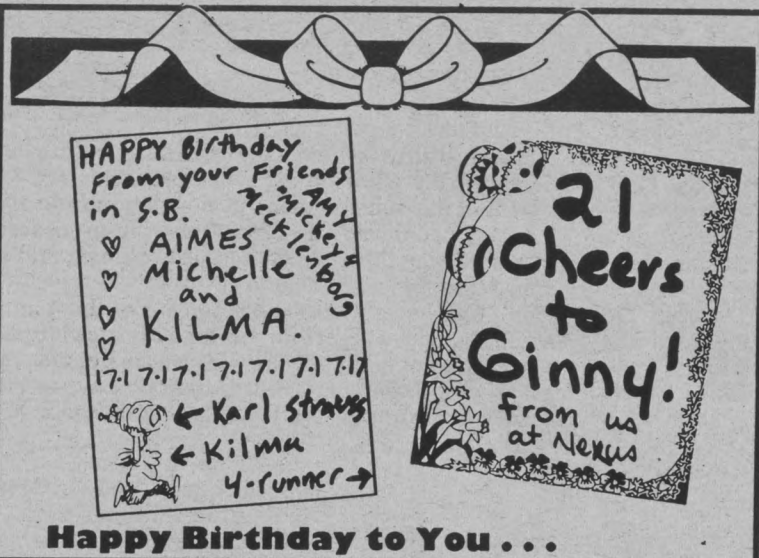 HAPPY Birthday
From your Friends
in S.B.
AMY
"Mickey"
Mecklenborg
♡ AIMES
♡ Michelle
and
♡ KILMA.
♡
17-17-17-17-17-17-17-17
← Karl Strauss
← Kilma
4-runner →
21
Cheers
to
Ginny!
from us
at Nexus
Happy Birthday to You . . .